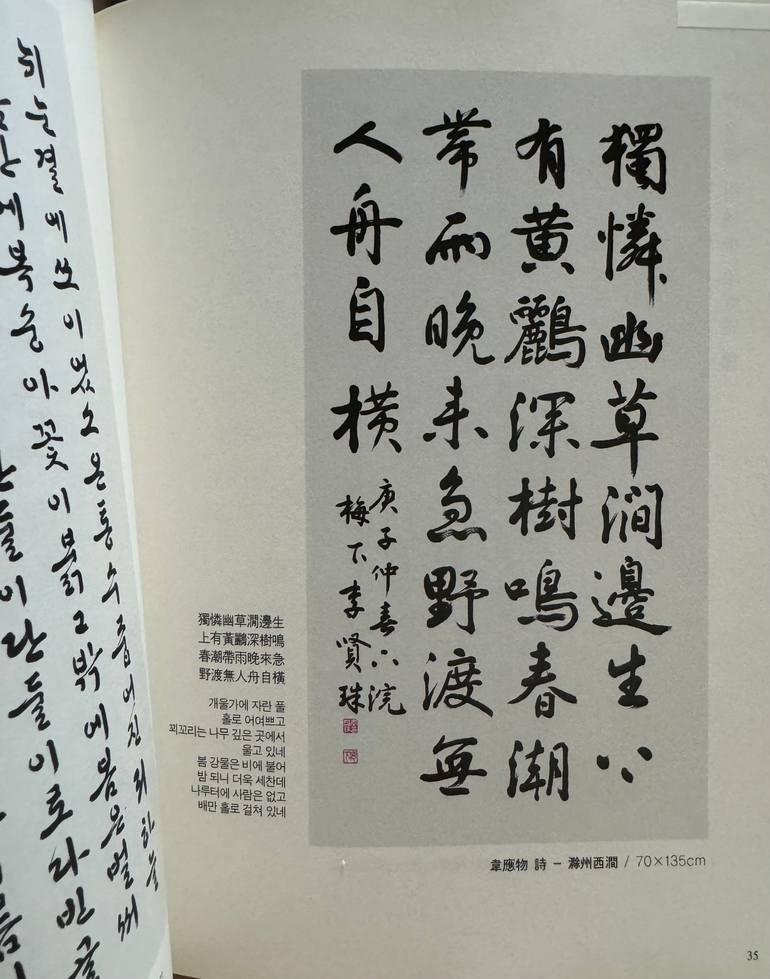 獨憐幽草澗邊生上
有黃鸝深樹鳴春潮
帶雨晚來急野渡無
人舟自橫
庚子仲春下浣
梅下李賢珠
獨憐幽草澗邊生
上有黃鸝深樹鳴
春潮帶雨晚來急
野渡無人舟自橫
개울가에 자란 풀
홀로 어여쁘고
꾀꼬리는 나무 깊은 곳에서
울고 있네
봄 강물은 비에 불어
밤 되니 더욱 세찬데
나루터에 사람은 없고
배만 홀로 걸쳐 있네
韋應物 詩 - 滁州西澗 / 70×135cm
35
온통 수줍어진
복숭아꽃이 붉고 밖에 봄은 벌써